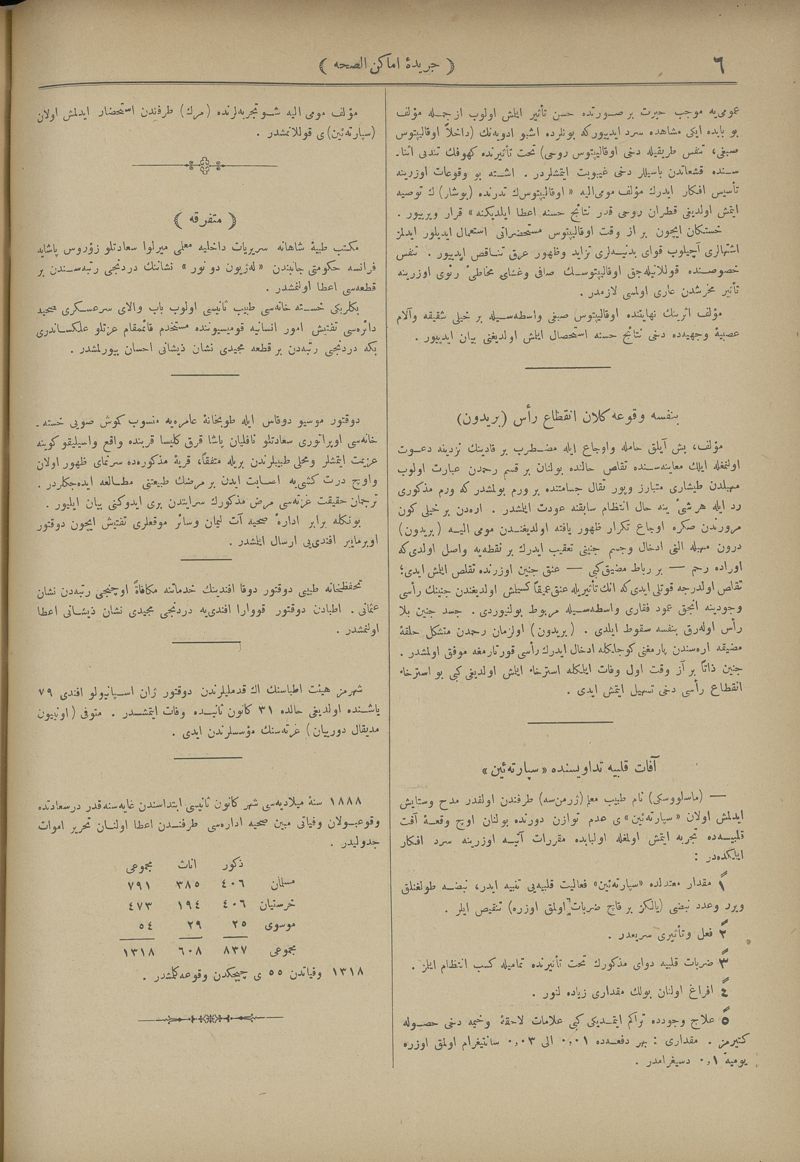 ٦
﴿ جريدۀ اماكن الصحه ﴾
عموميه موجب حيرت بر صورتده حسن تأثير ايلش اولوب ازجمله مؤلف
بو بابده ايكى مشاهده سرد ايدييوركه بونلرده اشبو ادويه‌نك (داخلاً اوقاليپتوس
صبغى، تنفس طريقيله دخى اوقاليپتوس روحى) تحت تأثيرنده كهوفك تندبى اثنا-
سنده قشعاتدن باسيللر دخى غيبوبت ايتمشلردر . اشته بو وقوعات اوزرينه
تأسيس افكار ايدرك مؤلف مومى‌اليه « اوقاليپتوسك تدرنده (بوشار) ك توصيه
ايتمش اولديغى قطران روحى قدر نتائج حسنه اعطا ايلديكنه » قرار ويرييور .
خستكان ايچون بر از وقت اوقاليپتوس مستحضراتى استعمال ايديلور ايدلمز
اشتهالرى آچيلوب قواى بدنيه‌لرى تزايد وظهور عرق تناقص ايدييور . تنفس
خصوصنده قوللانيله‌جق اوقاليپتوسك صافى وغشاى مخاطئ رئوى اوزرينه
تأثير مخرشدن عارى اولمسى لازمدر .
مؤلف اثرينك نهايتنده اوقاليپتوس صبغى واسطه‌سيله بر خيلى شقيقه وآلام
عصبية وجهيه‌ده دخى نتائج حسنه استحصال ايلش اولديغنى بيان ايدييور .
بنفسه وقوعه كلان انقطاع رأس (بريدون)
مؤلف، بش آيلق حامله واوجاع ايله مضطرب بر قادينك نزدينه دعوت
اولنمغله ايلك معاينه‌سنده تقلص حالنده بولنان بر قسم رحمدن عبارت اولوب
مهبلدن طيشارى متبارز وپور تقال جسامتنده بر ورم بولمشدر كه ورم مذكورى
رد ايله هر شئ ينه حال انتظام سابقنه عودت ايلشدر . اره‌دن بر خيلى كون
مروورندن صكره اوجاع تكرار ظهور يافته اولديغندن مومى اليه (بريدون)
درون مهبله الى ادخال وجسم جنينى تعقيب ايدرك بر نقطه‌يه واصل اولدى‌كه
اوراده رحم — بر رباط مضيق كبى — عنق جنين اوزرنده تقلص ايلش ايدى؛
تقلص اولدرجه قوتلى ايدى كه انك تأثيريله عنق عميقاً كسلمش اولديغندن جنينك رأسى
وجودينه انجق عمود فقارى واسطه‌سيله مربوط بولنيوردى . جسد جنين بلا
رأس اوله‌رق بنفسه سقوط ايلدى . (بريدون) اولزمان رحمدن متشكل حلقۀ
مضيقه اره‌سندن پارمغنى كوجلكله ادخال ايدرك رأسى قورتارمغه موفق اولمشدر .
جنين ذاتاً بر آز وقت اول وفات ايلمكله استرخاء ايلش اولديغى كبى بو استرخاء
انقطاع رأسى دخى تسهيل ايتمش ايدى .
آفات قلبيه تداويسنده «سپارته‌ئين»
— (ماسلووسكى) نام طبيب معلم (ژرمن‌سه) طرفندن اولقدر مدح وستايش
ايدلمش اولان «سپارته‌ئين»ى عدم توازن دورنده بولنان اوچ وقعۀ آفت
قلبيه‌ده تجربه ايتمش اولمغله اولبابده مقررات آتيه اوزرينه سرد افكار
ايلكده‌در :
١ مقدار معتدلده «سپارته‌ئين» فعاليت قلبيه‌يى تنبيه ايدر، نبضه طولغنلق
ويرر وعدد نبضى (يالكز بر قاچ ضربات اولمق اوزره) تنقيص ايلر .
٢ فعل وتأثيرى سريعدر .
٣ ضربات قلبيه دواى مذكورك تحت تأثيرنده تماميله كسب انتظام ايلز .
٤ افراغ اولنان بولك مقدارى زياده لنور .
٥ علاج وجودده تراكم ايتمديكى كبى علامات لاحقۀ وخيمه دخى حصوله
كتيرمز . مقدارى : بهر دفعه‌ده ٠,٠١ الى ٠,٠٣ سانتيغرام اولمق اوزره
يوميه ٠,١ دسيغرامدر .
مؤلف مومى اليه شو تجربه‌لرنده (مرك) طرفندن استحضار ايدلمش اولان
(سپارته‌ئين)ى قوللانمشدر .
﴿ متفرقه ﴾
مكتب طبيۀ شاهانه سريريات داخليه معلمى ميرلوا سعادتلو زؤروس پاشايه
فرانسه حكومتى جانبندن «له‌ژيون دو نور» نشاننك دردنجى رتبه‌سندن بر
قطعه‌سى اعطا اولنمشدر .
بكلربكى خسته خانه‌سى طبيب ثانيسى اولوب باب والاى سرعسكرى صحيه
دائره‌سى تفتيش امور انسانيه قوميسيوننده مستخدم قائمقام عزتلو علكساندرى
بكه دردنجى رتبه‌دن بر قطعه مجيدى نشان ذيشانى احسان بيورلمشدر .
دوقتور موسيو دوقاس ايله طوپخانۀ عامره‌يه منسوب كوش صويى خسته-
خانه‌سى اوپراتورى سعادتلو نافليان پاشا قرق كليسا قربنده واقع واسيليقو كوينه
عزيمت ايتمشلر ومحلى طبيبلرندن بريله متفقاً، قريۀ مذكوره‌ده سرنماى ظهور اولان
واوچ درت كشى‌يه اصابت ايدن بر مرضك طبيعتنى مطالعه ايده‌جكلردر .
ترجمان حقيقت غزته‌سى مرض مذكورك سرايتدن برى ايدوكنى بيان ايليور .
بونكله برابر ادارۀ صحيه آت ليمان وسائر موقعلرى تفتيش ايچون دوقتور
اوبرماير افندى‌يى ارسال ايلشدر .
تحفظخانه طبيبى دوقتور دوفا افندينك خدماتنه مكافاةً اوچنجى رتبه‌دن نشان
عثمانى . اطبادن دوقتور قووارا افندى‌يه دردنجى مجيدى نشان ذيشانى اعطا
اولنمشدر .
شهرمز هيئت اطباسنك اك قدملرندن دوقتور ژان اسپانيولو افندى ٧٩
ياشنده اولديغى حالده ٣١ كانون ثانيده وفات ايتمشدر . متوفى (اونييون
مديقال دوريان) غزته‌سنك مؤسسلرندن ايدى .
١٨٨٨ سنۀ ميلاديه‌سى شهر كانون ثانيسى ابتداسندن غايه‌سنه قدر درسعادتده
وقوعبولان وفياتى مبين صحيه اداره‌سى طرفندن اعطا اولنان تحرير اموات
جدوليدر .
ذكور اناث مجموعى
مسلمان ٤٠٦ ٣٨٥ ٧٩١
خرستيان ٤٠٦ ١٩٤ ٤٧٣
موسوى ٢٥ ٢٩ ٥٤
مجموعى ٨٣٧ ٦٠٨ ١٣١٨
١٣١٨ وفياتدن ٥٥ ى چيچكدن وقوعه‌كلمشدر .